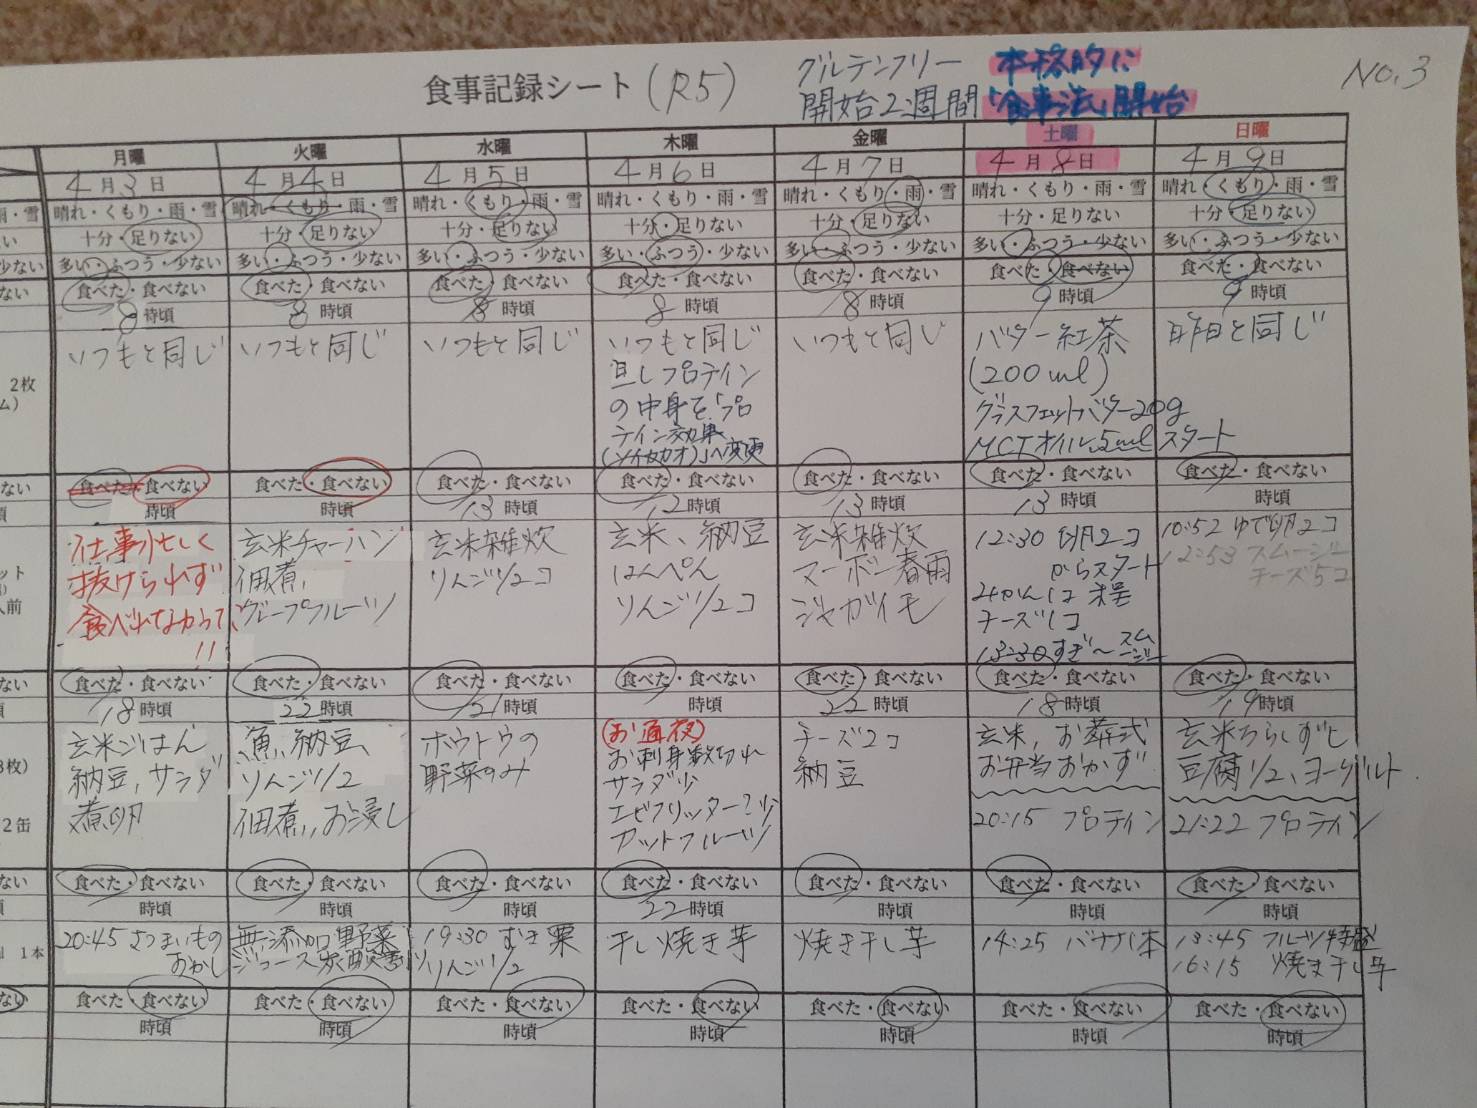 食事記録シート (R5)
グルテンフリー
開始2週間
本格的に
「食事法」開始
No.3
月曜 火曜 水曜 木曜 金曜 土曜 日曜
4月3日 4月4日 4月5日 4月6日 4月7日 4月8日 4月9日
雨・雪 晴れ・くもり・雨・雪 晴れ・くもり・雨・雪 晴れ・くもり・雨・雪 晴れ・くもり・雨・雪 晴れ・くもり・雨・雪 晴れ・くもり・雨・雪 晴れ・くもり・雨・雪
ない 十分・足りない 十分・足りない 十分・足りない 十分・足りない 十分・足りない 十分・足りない 十分・足りない
少ない 多い・ふつう・少ない 多い・ふつう・少ない 多い・ふつう・少ない 多い・ふつう・少ない 多い・ふつう・少ない 多い・ふつう・少ない 多い・ふつう・少ない
ない 食べた・食べない 食べた・食べない 食べた・食べない 食べた・食べない 食べた・食べない 食べた・食べない 食べた・食べない
8時頃 8時頃 8時頃 8時頃 8時頃 9時頃 9時頃
2枚
ム)
いつもと同じ
いつもと同じ
いつもと同じ
いつもと同じ
但しプロテイン
の中身を「プロ
テイン効果
(ソイカカオ)」へ変更
いつもと同じ
バター紅茶
(200ml)
グラスフェットバター20g
MCTオイル5mlスタート
昨日と同じ
ない 食べた・食べない 食べた・食べない 食べた・食べない 食べた・食べない 食べた・食べない 食べた・食べない 食べた・食べない
時頃 時頃 13時頃 12時頃 13時頃 13時頃 時頃
ット
人前
仕事忙しく
抜けられず
食べれなかった
!!
玄米チャーハン
佃煮
グレープフルーツ
玄米雑炊
りんご1/2コ
玄米、納豆
はんぺん
りんご1/2コ
玄米雑炊
マーボー春雨
ジャガイモ
12:30 卵2コ
からスタート
みかん1コ
チーズ1コ
13:30すぎ〜スムージー
10:52 ゆで卵2コ
12:53 スムージー
チーズ5コ
ない 食べた・食べない 食べた・食べない 食べた・食べない 食べた・食べない 食べた・食べない 食べた・食べない 食べた・食べない
18時頃 22時頃 21時頃 時頃 22時頃 18時頃 19時頃
3枚)
2缶
玄米ごはん
納豆, サラダ
煮卵
魚, 納豆、
りんご1/2
佃煮, お浸し
ホウトウの
野菜のみ
(お通夜)
お刺身数切れ
サラダ少
エビフリッター?少
カットフルーツ
チーズ2コ
納豆
玄米, お葬式
お弁当おかず
20:15 プロテイン
玄米ちらしずし
豆腐1/2、ヨーグルト
21:22 プロテイン
ない 食べた・食べない 食べた・食べない 食べた・食べない 食べた・食べない 食べた・食べない 食べた・食べない 食べた・食べない
時頃 時頃 時頃 22時頃 時頃 時頃 時頃
1本
20:45 さつまいもの
おかし
無添加野菜
ジュース炭酸割り
19:30 むき栗
りんご1/2
干し焼き芋
焼き干し芋
14:25 バナナ1本
13:45 フルーツ盛
16:15 焼き干し芋
ない 食べた・食べない 食べた・食べない 食べた・食べない 食べた・食べない 食べた・食べない 食べた・食べない 食べた・食べない
時頃 時頃 時頃 時頃 時頃 時頃 時頃